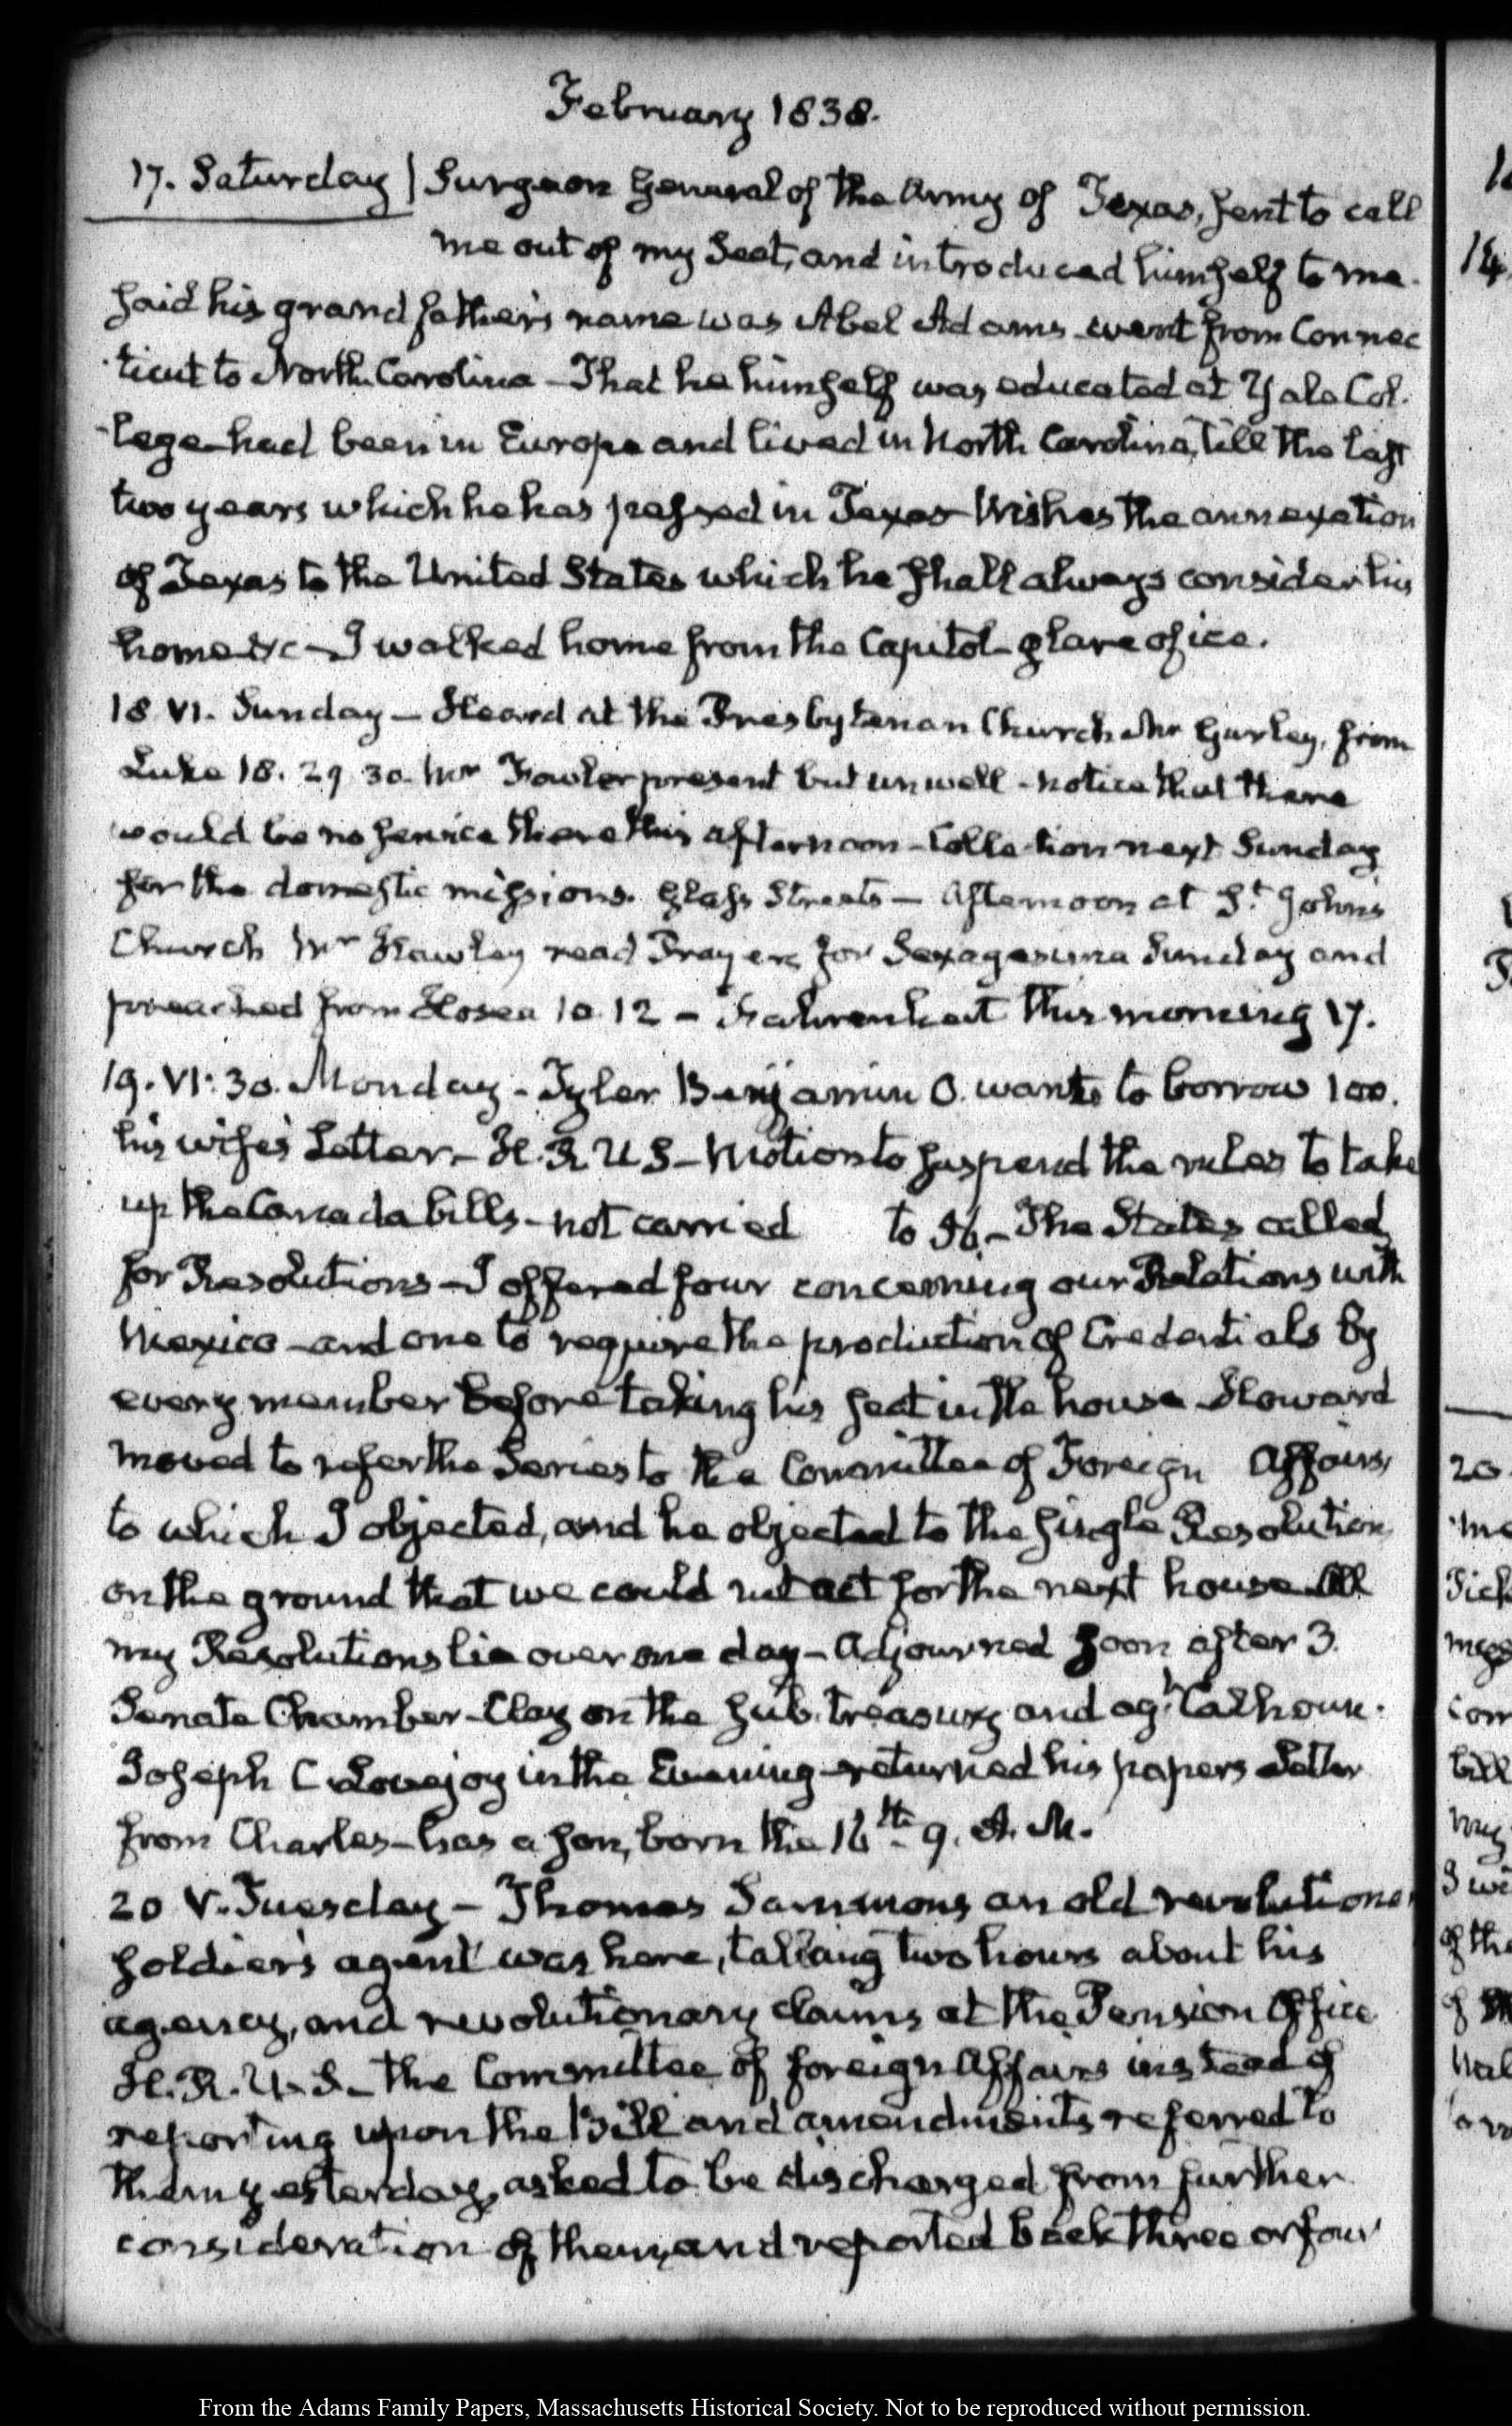 February 1838.
17. Saturday | Surgeon General of the Army of Texas, sent to call
me out of my Seat, and introduced himself to me.
said his grandfather's name was Abel Adams went from Connec
ticut to North Carolina – That he himself was educated at Yale Col-
lege had been in Europe and lived in North Carolina, till the last
two years which he has passed in Texas Wishes the annexation
of Texas to the United States which he shall always consider his
home &c – I walked home from the Capitol glare of ice.
18 VI. Sunday – Heard at the Presbyterian Church Mr Gurley, from
Luke 18. 29 30. Mr Fowler present but unwell – notice that there
would be no service there this afternoon – Collection next Sunday
for the domestic missions. Glass Streets – Afternoon at St. John's
Church Mr Hawley read Prayers for Sexagesima Sunday and
preached from Hosea 10. 12 – Fahrenheit this morning 17.
19. VI: 30. Monday – Tyler Benjamin O. wants to borrow 100.
his wife's Letter – H.R.U.S – Motion to suspend the rules to take
up the Canada bills – not carried to 76. – The States called
for Resolutions – I offered four concerning our Relations with
Mexico – and one to require the production of Credentials by
every member before taking his seat in the house Howard
moved to refer the Series to the Committee of Foreign Affairs,
to which I objected, and he objected to the single Resolution,
on the ground that we could not act for the next house. All
my Resolutions lie over one day – Adjourned soon after 3.
Senate Chamber – Clay on the sub. treasury and agt. Calhoun.
Joseph C Lovejoy in the Evening – returned his papers Letter
from Charles – has a son, born the 16th 9. A.M.
20 V. Tuesday – Thomas Sammons an old revolutionary
soldier's agent was here, talking two hours about his
agency, and revolutionary claims at the Pension Office
H.R.U.S. – The Committee of foreign Affairs instead of
reporting upon the Bill and amendments referred to
them yesterday, asked to be discharged from further
consideration of them, and reported back three or four
From the Adams Family Papers, Massachusetts Historical Society. Not to be reproduced without permission.